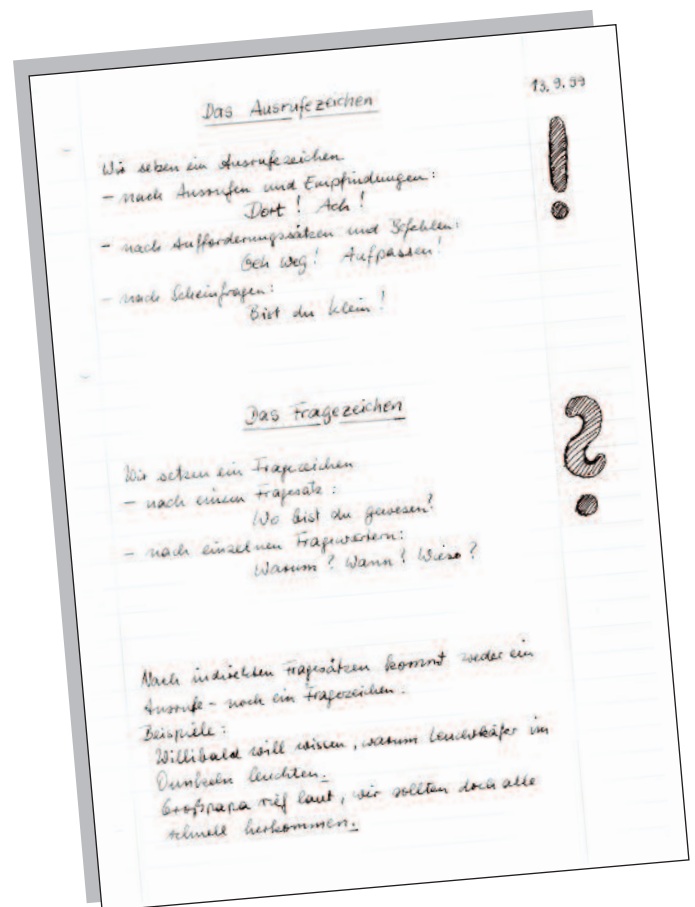 13.9.99
Das Ausrufezeichen
Wir setzen ein Ausrufezeichen
- nach Ausrufen und Empfindungen:
Dort! Ach!
- nach Aufforderungssätzen und Befehlen:
Geh weg! Aufpassen!
- nach Scheinfragen:
Bist du klein!
!
Das Fragezeichen
Wir setzen ein Fragezeichen
- nach einem Fragesatz:
Wo bist du gewesen?
- nach einzelnen Fragewörtern:
Warum? Wann? Wieso?
?
Nach indirekten Fragesätzen kommt weder ein
Ausrufe- noch ein Fragezeichen.
Beispiele:
Willibald will wissen, warum Leuchtkäfer im
Dunkeln leuchten.
Großpapa rief laut, wir sollten doch alle
schnell herkommen.